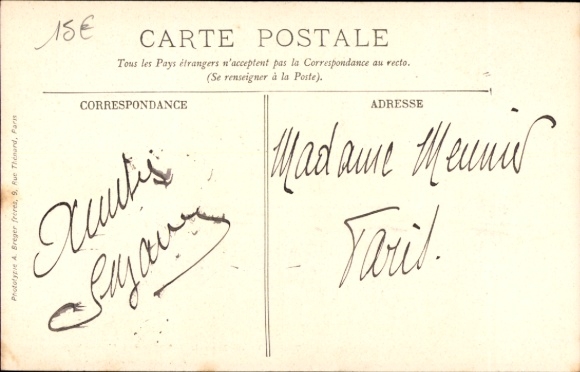 15€
CARTE POSTALE
Tous les Pays étrangers n'acceptent pas la Correspondance au recto.
(Se renseigner à la Poste).
CORRESPONDANCE
Amitiés
Suzanne
ADRESSE
Madame Meunier
Paris.
Phototypie A. Breger frères, 9, Rue Thénard, Paris